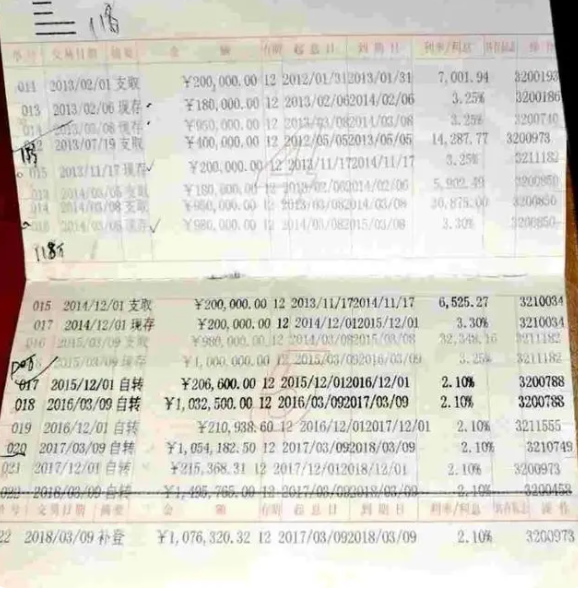 118
序号 交易日期 摘要 金 额 存期 起息日 到期日 利率/利息 操作
011 2013/02/01 支取 ¥200,000.00 12 2012/01/31 2013/01/31 7,001.94 3200193
013 2013/02/06 现存 ¥180,000.00 12 2013/02/06 2014/02/06 3.25% 3200186
014 2013/03/08 现存 ¥950,000.00 12 2013/03/08 2014/03/08 3.25% 3200740
2013/07/19 支取 ¥400,000.00 12 2012/05/05 2013/05/05 14,287.77 3200973
015 2013/11/17 现存 ¥200,000.00 12 2013/11/17 2014/11/17 3.25% 3211182
013 2014/03/08 支取 ¥180,000.00 12 2013/02/06 2014/02/06 3200850
014 2014/03/08 支取 ¥950,000.00 12 2013/03/08 2014/03/08 30,875.00 3200850
016 2014/03/08 现存 ¥980,000.00 12 2014/03/08 2015/03/08 3.30% 3200850
118万
015 2014/12/01 支取 ¥200,000.00 12 2013/11/17 2014/11/17 6,525.27 3210034
017 2014/12/01 现存 ¥200,000.00 12 2014/12/01 2015/12/01 3.30% 3210034
016 2015/03/09 支取 ¥980,000.00 12 2014/03/08 2015/03/08 3211182
2015/03/09 现存 ¥1,000,000.00 12 2015/03/09 2016/03/09 3.25% 3211182
017 2015/12/01 自转 ¥206,600.00 12 2015/12/01 2016/12/01 2.10% 3200788
018 2016/03/09 自转 ¥1,032,500.00 12 2016/03/09 2017/03/09 2.10% 3200788
019 2016/12/01 自转 ¥210,938.60 12 2016/12/01 2017/12/01 2.10% 3211555
020 2017/03/09 自转 ¥1,054,182.50 12 2017/03/09 2018/03/09 2.10% 3210749
021 2017/12/01 自转 ¥215,368.31 12 2017/12/01 2018/12/01 2.10% 3200973
2018/03/09 自转 2017/03/09 2018/03/09 2.10% 3200458
序号 交易日期 摘要 金 额 存期 起息日 到期日 利率/利息 操作
22 2018/03/09 补登 ¥1,076,320.32 12 2017/03/09 2018/03/09 2.10% 3200973